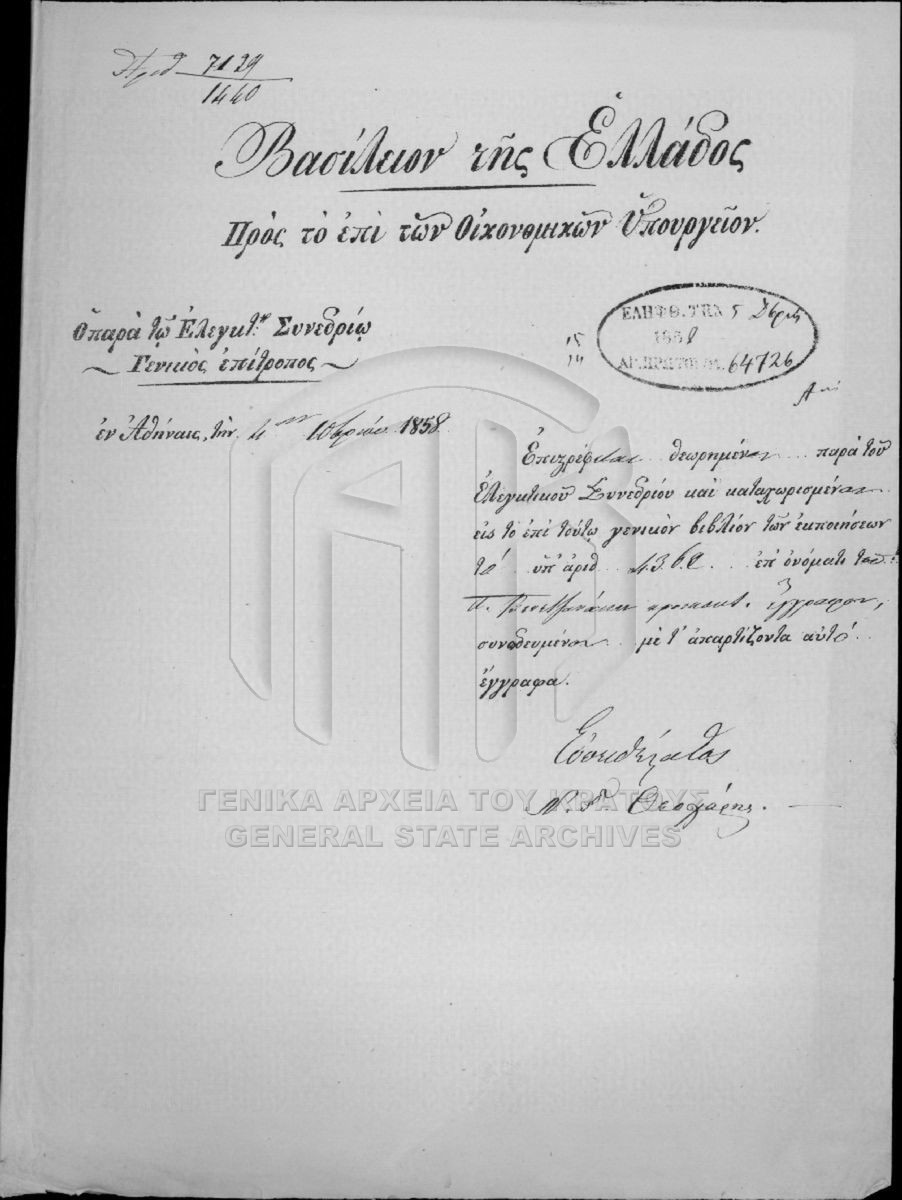 Ἀριθ 7129
1440
Βασίλειον τῆς Ἑλλάδος
Πρὸς τὸ ἐπὶ τῶν Οἰκονομικῶν Ὑπουργεῖον.
Ὁ παρὰ τῷ Ἐλεγκτ. Συνεδρίῳ
Γενικὸς ἐπίτροπος
ΕΛΗΦΘ. ΤΗΝ 5 Δβρίου
1858
ΑΡ. ΠΡΩΤΟΚΟΛ. 64726
15
14
ἐν Ἀθήναις, τὴν 4 10βρίου 1858
Ἐπιστρέφεται θεωρημένον παρὰ τοῦ
Ἐλεγκτικοῦ Συνεδρίου καὶ καταχωρισμένον
εἰς τὸ ἐπὶ τούτῳ γενικὸν βιβλίον τῶν ἐκποιήσεων
τὸ ὑπ' ἀριθ ἐπ' ὀνόματι τοῦ
Π. ἔγγραφον,
συνοδευμένον μὲ τ' ἀπαρτίζοντα αὐτὸ
ἔγγραφα.
Εὐπειθέστατος
ΓΕΝΙΚΑ ΑΡΧΕΙΑ ΤΟΥ ΚΡΑΤΟΥΣ
GENERAL STATE ARCHIVES